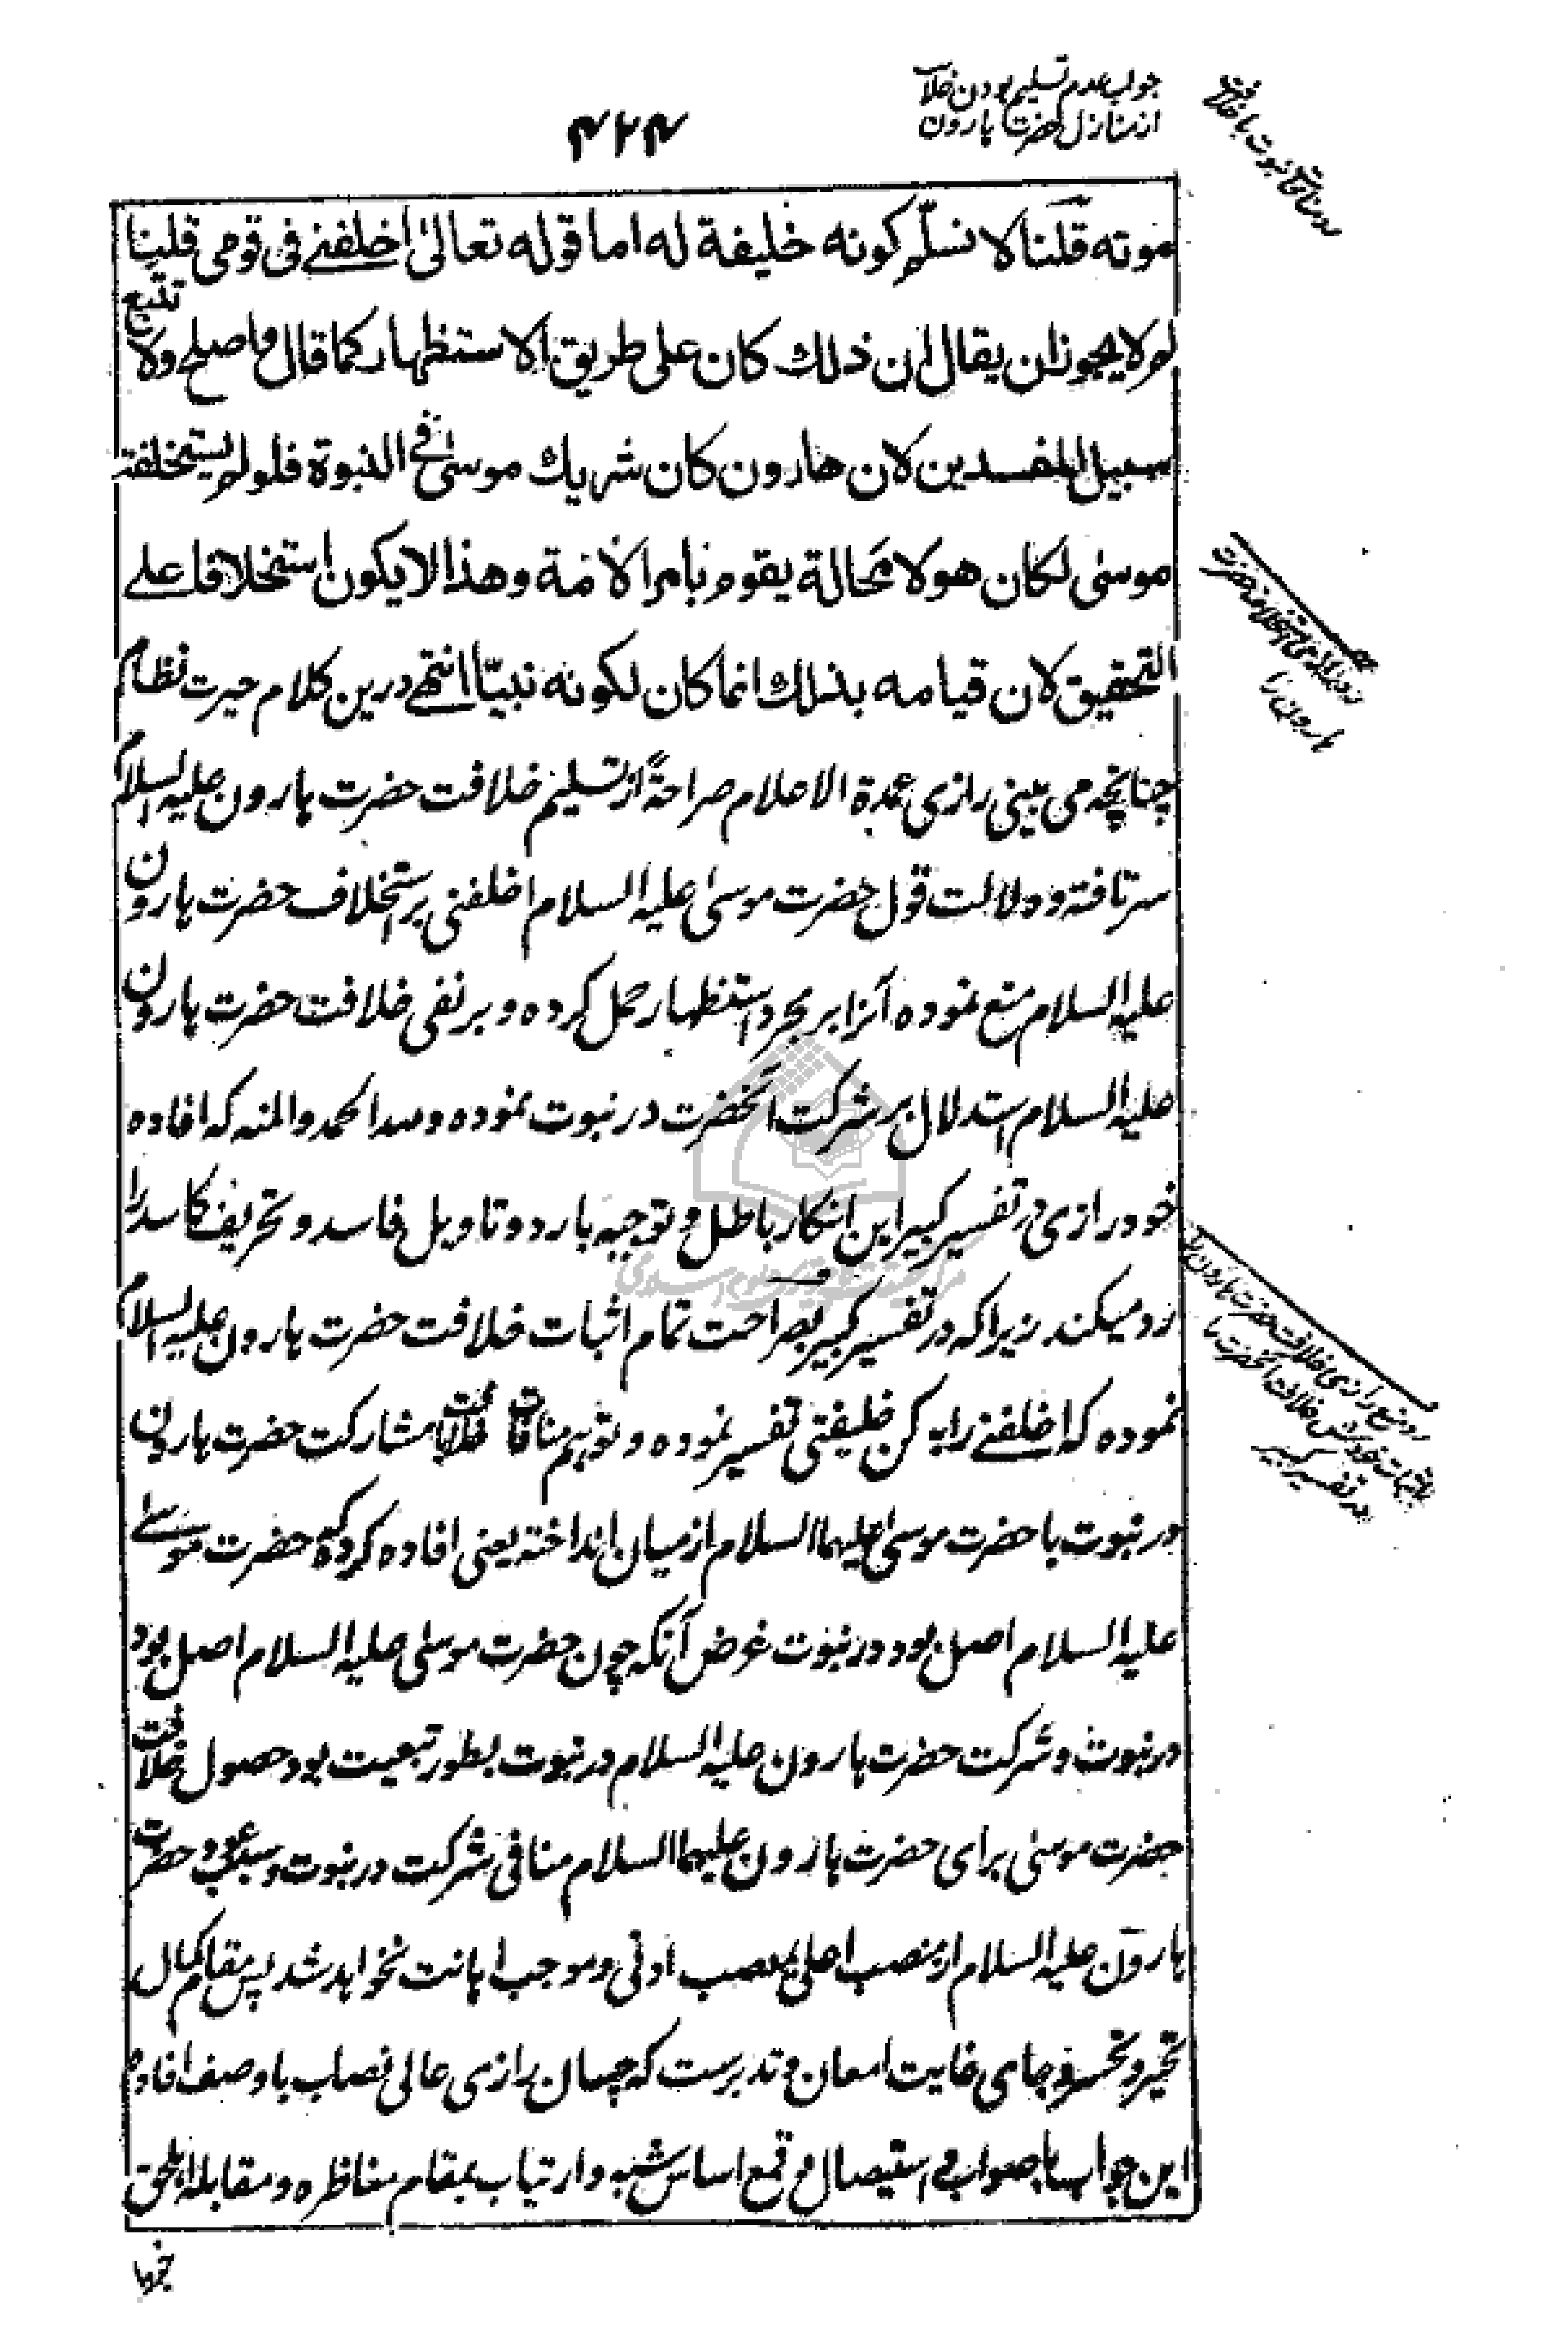 جواب عدم تسلیم بودن خلافت
از منازل حضرت هارون
۴۲۴
موته قلنا لا نسلم کونه خلیفة له اما قوله تعالی اخلفنے فی قومی قلنا
لم لا یجوز ان یقال ان ذلك کان علی طریق الاستظهار کما قال واصلح ولا تتبع
سبیل المفسدین لان هارون کان شریك موسی فی النبوة فلو لم یستخلفه
موسی لکان هو لا محالة یقوم بامر الامة وهذا لا یکون استخلافا علے
التحقیق لان قیامه بذلك انما کان لکونه نبیّا انتهے درین کلام حیرت نظام
چنانچه می بینی رازی عمدة الاعلام صراحةً از تسلیم خلافت حضرت هارون علیه السلام
سر تافته و دلالت قول حضرت موسی علیه السلام اخلفنی بر استخلاف حضرت هارون
علیه السلام منع نموده آنرا بر مجرد استظهار حمل کرده و بر نفی خلافت حضرت هارون
علیه السلام استدلال بر شرکت آنحضرت در نبوت نموده ولله الحمد والمنه که افاده
خود رازی در تفسیر کبیر این انکار باطل و توجیه بارد و تاویل فاسد و تحریف کاسد را
رد میکند زیرا که در تفسیر کبیر بصراحت تمام اثبات خلافت حضرت هارون علیه السلام
نموده که اخلفنے را به کن خلیفتی تفسیر نموده و توهم منافات خلافت با مشارکت حضرت هارون
در نبوت با حضرت موسی علیهما السلام از میان انداخته یعنی افاده کرده که حضرت موسے
علیه السلام اصل بود در نبوت غرض آنکه چون حضرت موسی علیه السلام اصل بود
در نبوت و شرکت حضرت هارون علیه السلام در نبوت بطور تبعیت بود حصول خلافت
حضرت موسی برای حضرت هارون علیهما السلام منافی شرکت در نبوت و سبب عود حضرت
هارون علیه السلام از منصب اعلی بمنصب ادنی و موجب اهانت نخواهد شد پس مقام کمال
تحیر و تحسر و جای غایت امعان و تدبرست که چسان رازی عالی نصاب با وصف افاده
این جواب با صواب و استیصال و قمع اساس شبه و ارتیاب بمقام مناظره و مقابله اهل حق
هارون را
رد منع رازی خلافت حضرت هارون را
باثبات خودش خلافت آنحضرت را
در تفسیر کبیر